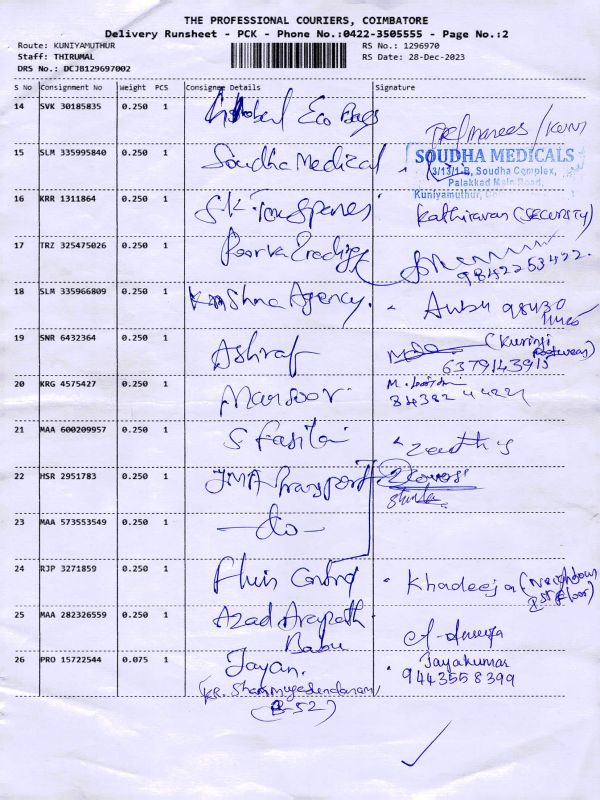 THE PROFESSIONAL COURIERS, COIMBATORE
Delivery Runsheet - PCK - Phone No.:0422-3505555 - Page No.:2
Route: KUNIYAMUTHUR
RS No.: 1296970
Staff: THIRUMAL
RS Date: 28-Dec-2023
DRS No.: DCJB129697002
S No Consignment No Weight PCS Consignee Details Signature
14 SVK 30185835 0.250 1 Global Eco Bags
15 SLM 335995840 0.250 1 Soudha Medical
SOUDHA MEDICALS
3/13/1-B, Soudha Complex,
Palakkad Main Road,
Kuniyamuthur,
16 KRR 1311864 0.250 1 S.K. Kathiravan (SECURITY)
17 TRZ 325475026 0.250 1 9842253422.
18 SLM 335966809 0.250 1 Krishna Agency. Anbu 98430
19 SNR 6432364 0.250 1 Ashraf (Kurinji Footwear)
6379143915
20 KRG 4575427 0.250 1 Mansoor
21 MAA 600209957 0.250 1 S
22 HSR 2951783 0.250 1 JMA Transport 2 covers
23 MAA 573553549 0.250 1 - do -
24 RJP 3271859 0.250 1 Khadeeja (Neighbour 1st floor)
25 MAA 282326559 0.250 1 Azad
Babu
26 PRO 15722544 0.075 1 Jayan. Jayakumar
9443558399
(KR.
(B-52)